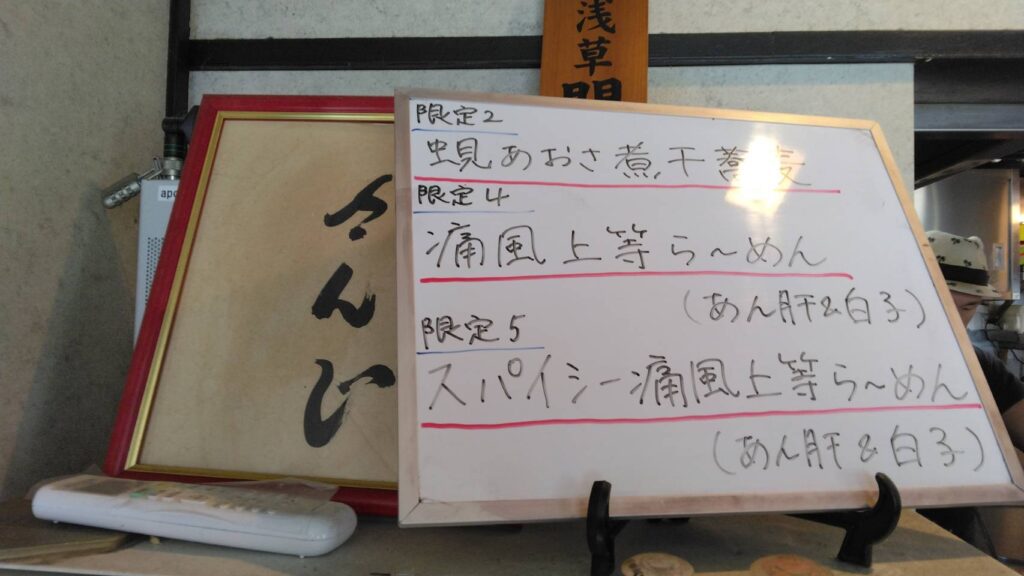 浅草開
限定2
蜆あおさ煮干蕎麦
限定4
痛風上等ら～めん
(あん肝&白子)
限定5
スパイシー痛風上等ら～めん
(あん肝&白子)
さんじ